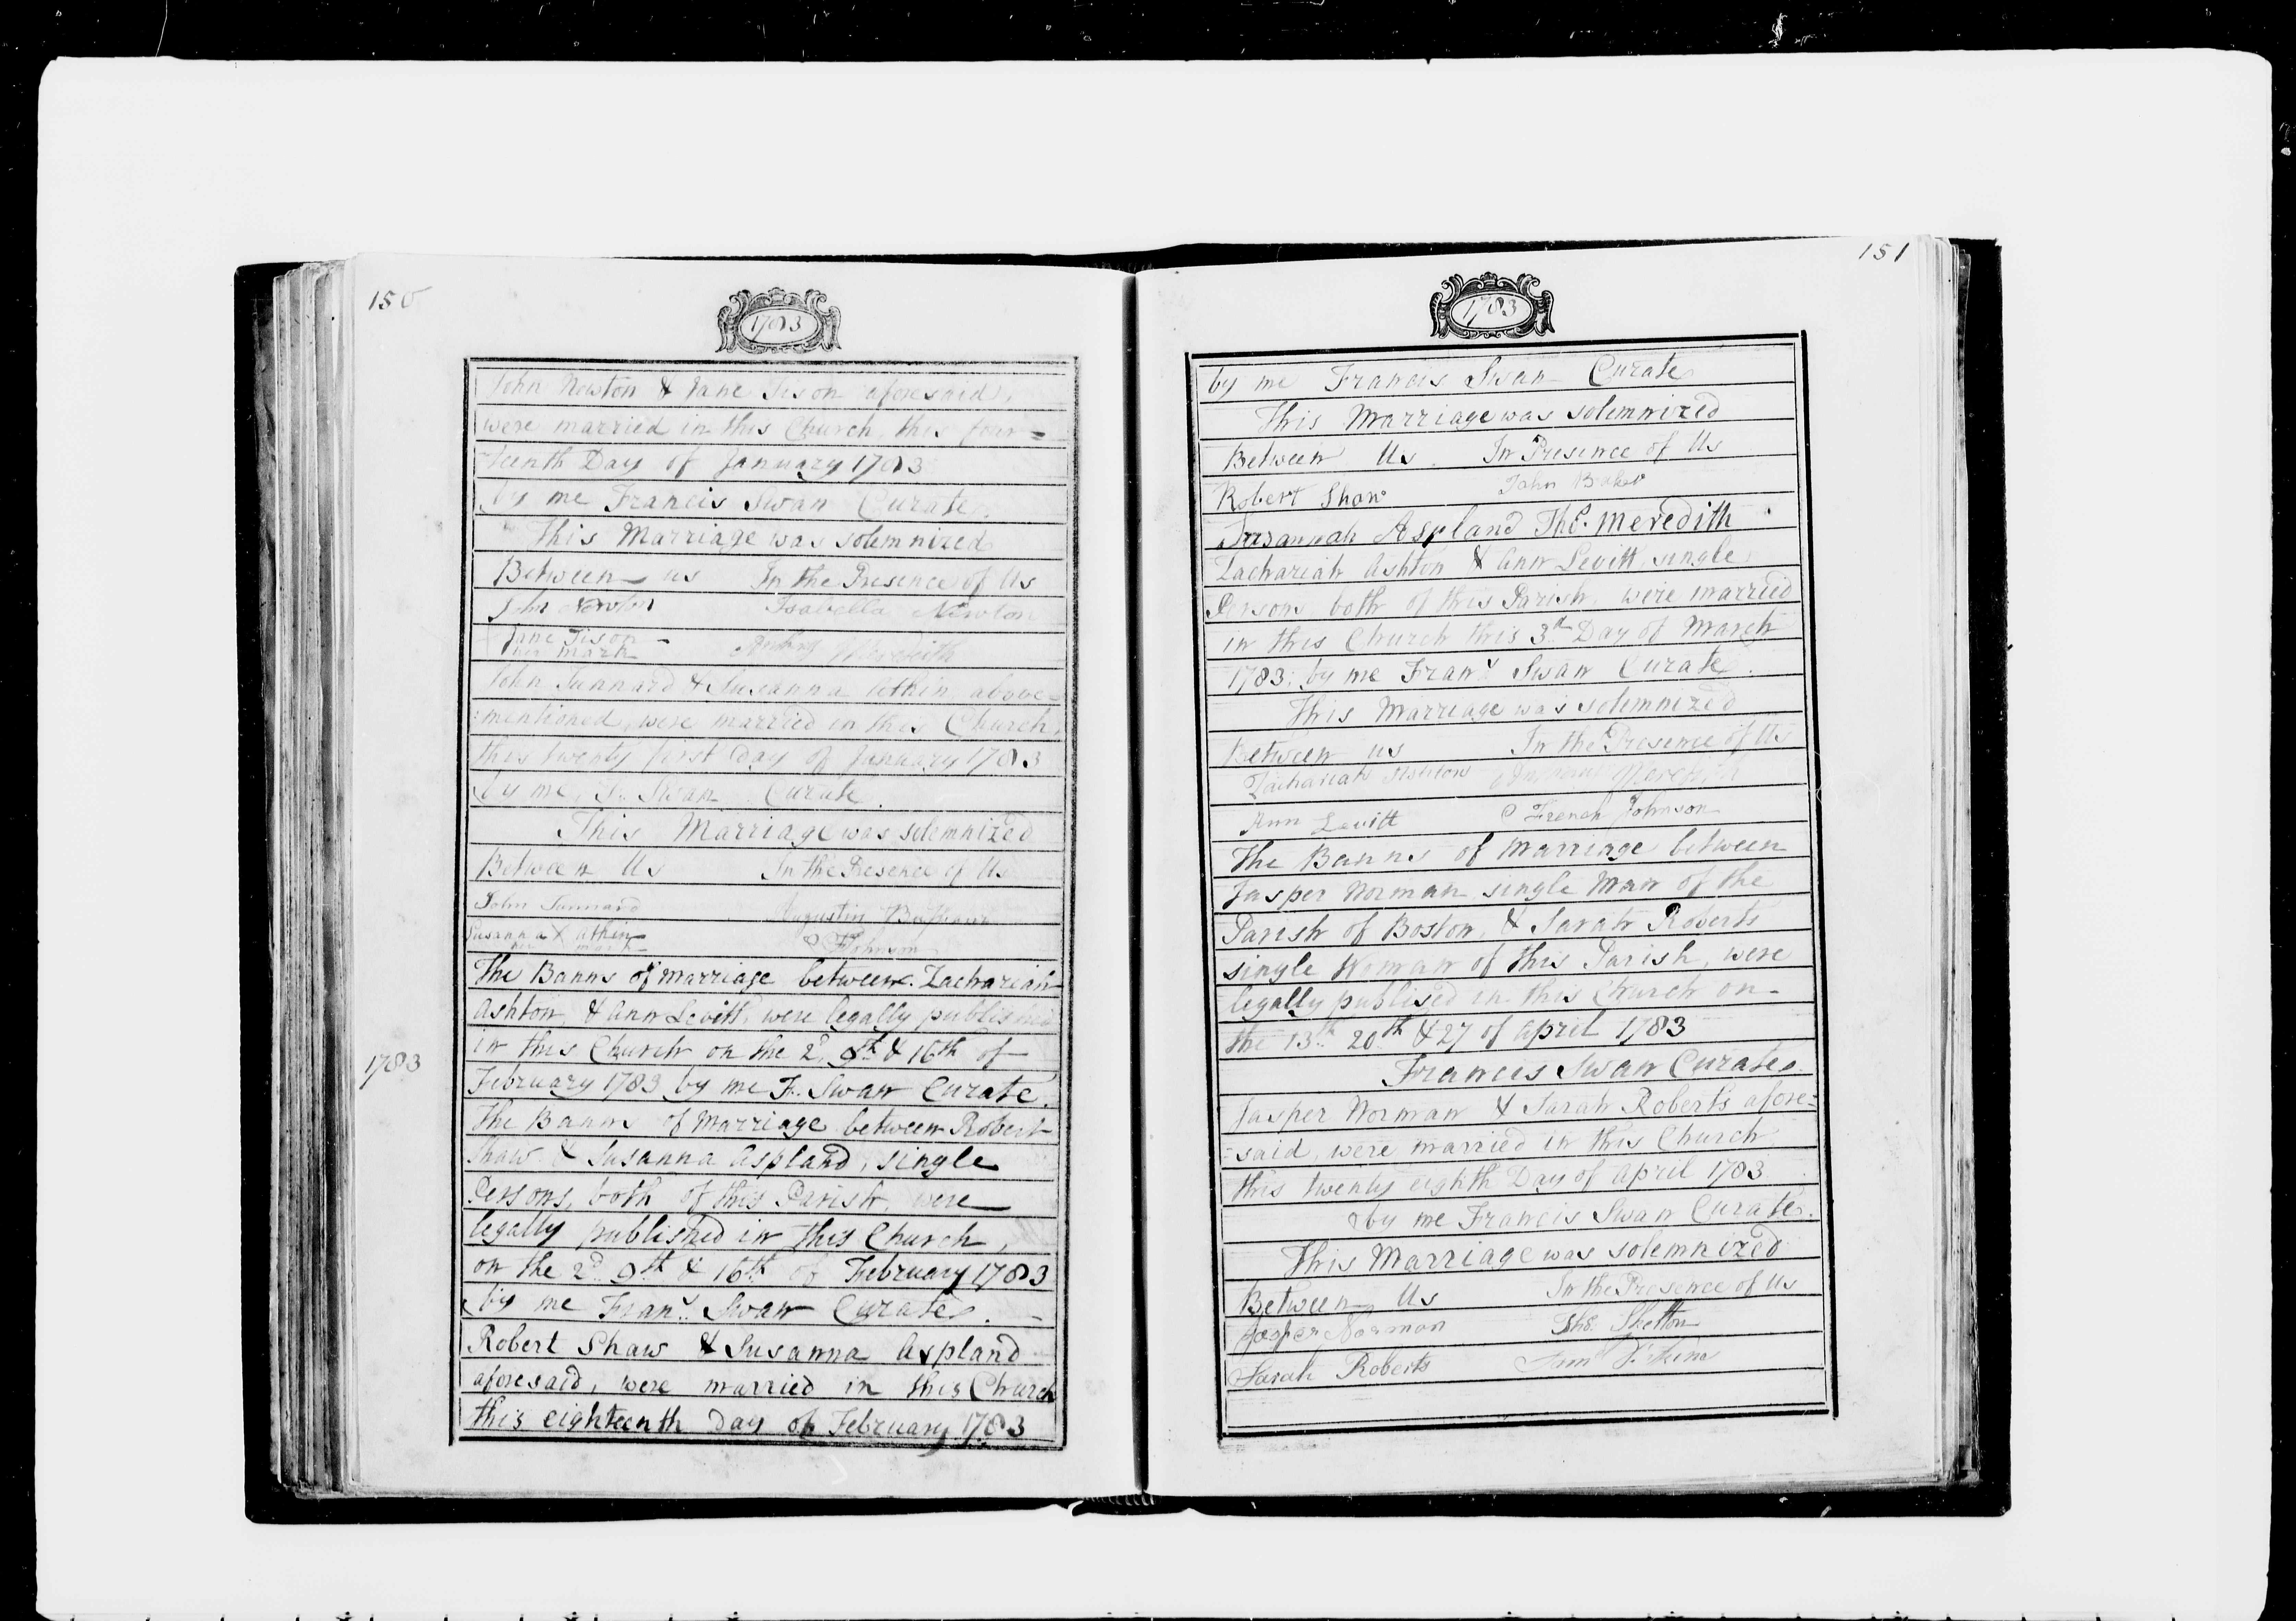 150
1783
John Newton & Jane Tison aforesaid,
were married in this Church, this four=
teenth Day of January 1783
by me Francis Swan Curate.
This Marriage was solemnized
Between us In the Presence of Us
John Newton Isabella Newton
Jane Tison
her mark Meredith
John Sunnard & Susanna Athin above=
=mentioned, were married in this Church,
this twenty first Day of January 1783
by me, F. Swan Curate.
This Marriage was solemnized
Between Us In the Presence of Us
John Sunnard Augustin
Susanna X athin Johnson
her mark
The Banns of Marriage between Zachariah
Ashton, & Ann Levitt, were legally published
in this Church on the 2d. 9th & 16th of
1783
February 1783 by me F. Swan Curate.
The Banns of Marriage between Robert
Shaw & Susanna Aspland, single
Persons, both of this Parish, were
legally published in this Church,
on the 2d. 9th & 16th of February 1783
by me Frans. Swan Curate.
Robert Shaw & Susanna Aspland
aforesaid, were married in this Church
this eighteenth Day of February 1783
151
1783
by me Francis Swan Curate
This Marriage was solemnized
Between Us. In Presence of Us
Robert Shaw John Baker
Susannah Aspland Thos. Meredith
Zachariah Ashton & Ann Levitt, single
Persons both of this Parish, were married
in this Church this 3d. Day of March
1783: by me Frans. Swan Curate.
This Marriage was solemnized
Between us In the Presence of Us
Zachariah Ashton Meredith
Ann Levitt French Johnson
The Banns of Marriage between
Jasper Norman single Man of the
Parish of Boston, & Sarah Roberts
single Woman of this Parish, were
legally publised in this Church on
the 13th. 20th & 27 of April 1783
Francis Swan Curate.
Jasper Norman & Sarah Roberts afore=
=said, were married in this Church
this twenty eighth Day of April 1783
by me Francis Swan Curate.
This Marriage was solemnized
Between Us In the Presence of Us
Jasper Norman Thos. Skelton
Sarah Roberts Sam